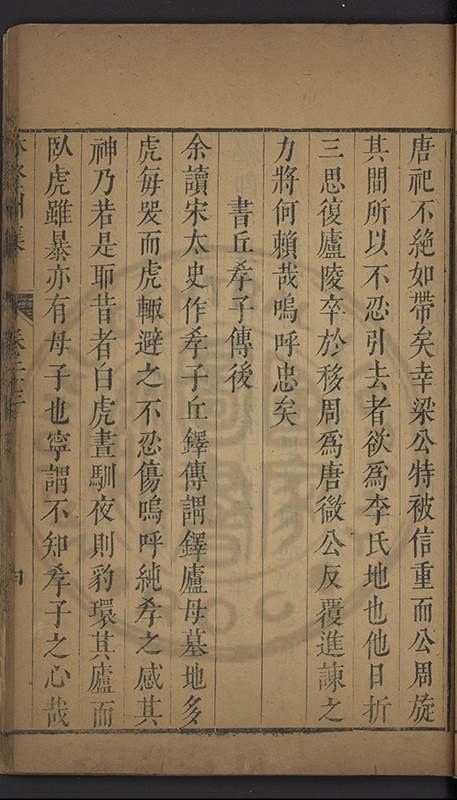 唐祀不絕如帶矣幸梁公特被信重而公周旋
其間所以不忍引去者欲爲李氏地也他日折
三思復廬陵卒於移周爲唐微公反覆進諫之
力將何賴哉嗚呼忠矣
書丘孝子傳後
余讀宋太史作孝子丘鐸傳謂鐸廬母墓地多
虎每哭而虎輒避之不忍傷嗚呼純孝之感其
神乃若是耶昔者白虎晝馴夜則豹環其廬而
臥虎雖暴亦有母子也寧謂不知孝子之心哉